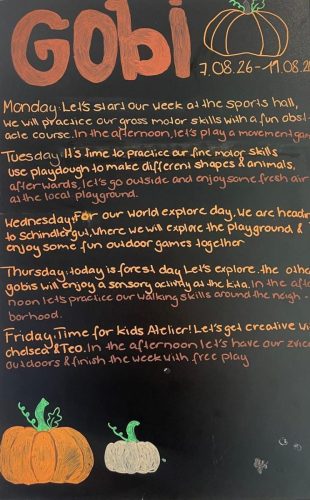 Gobi
7.08.26-11.08.2
Monday: Let's start our week at the sports hall,
we will practice our gross motor skills with a fun obst-
acle course. In the afternoon, let's play a movement gam
Tuesday: It's time to practice our fine motor skills
use playdough to make different shapes & animals.
afterwards, let's go outside and enjoy some fresh air
at the local playground.
Wednesday: For our world explore day, we are headin
to Schindlergut, where we will explore the playground &
enjoy some fun outdoor games together
Thursday: today is forest day Let's explore. the othe
gobis will enjoy a sensory activity at the kita. In the afte
noon let's practice our walking skills around the neigh-
borhood.
Friday: Time for kids Atelier! Let's get creative wi
chelsea & Teo. In the afternoon let's have our zvier
outdoors & finish the week with free play